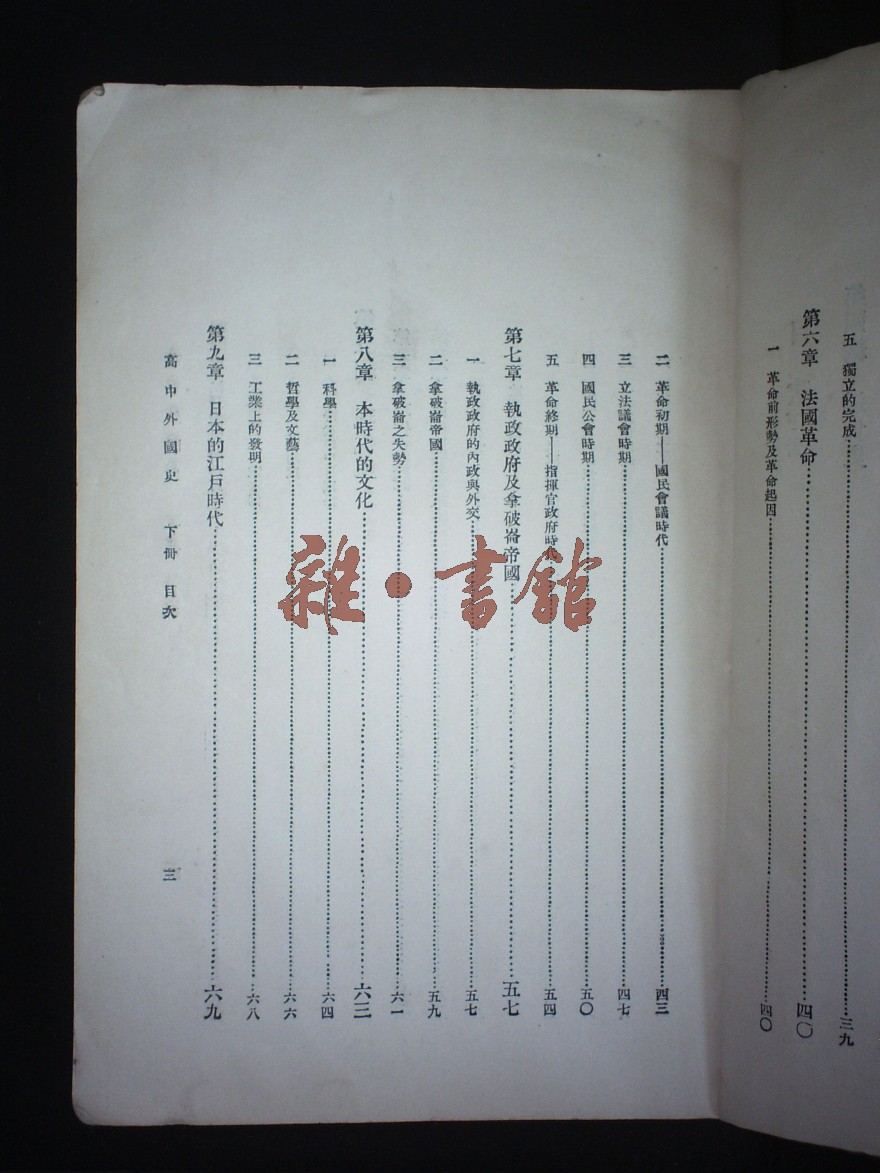 五 獨立的完成……三九
第六章 法國革命……四〇
一 革命前形勢及革命起因……四〇
二 革命初期——國民會議時代……四三
三 立法議會時期……四七
四 國民公會時期……五〇
五 革命終期——指揮官政府時代……五四
第七章 執政政府及拿破崙帝國……五七
一 執政政府的內政與外交……五七
二 拿破崙帝國……五九
三 拿破崙之失勢……六一
第八章 本時代的文化……六三
一 科學……六四
二 哲學及文藝……六六
三 工業上的發明……六八
第九章 日本的江戶時代……六九
高中外國史 下冊 目次 三
雜·書館